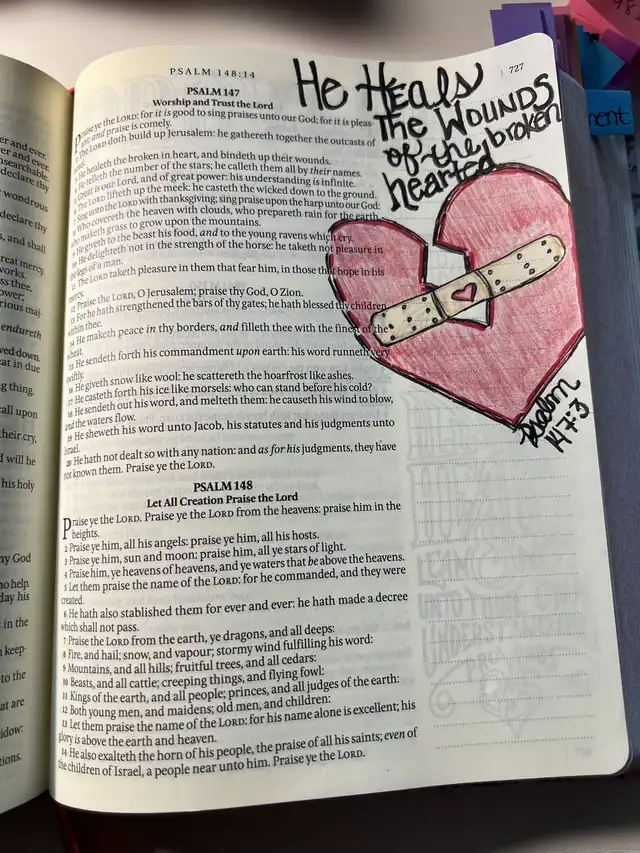 PSALM 148:14
727
PSALM 147
Worship and Trust the Lord
Praise ye the LORD: for it is good to sing praises unto our God; for it is pleas-
and praise is comely.
The LORD doth build up Jerusalem: he gathereth together the outcasts of
healeth the broken in heart, and bindeth up their wounds.
telleth the number of the stars; he calleth them all by their names.
Great is our Lord, and of great power: his understanding is infinite.
The LORD lifteth up the meek: he casteth the wicked down to the ground.
Sing unto the LORD with thanksgiving; sing praise upon the harp unto our God:
Who covereth the heaven with clouds, who prepareth rain for the earth,
who maketh grass to grow upon the mountains.
He giveth to the beast his food, and to the young ravens which cry.
He delighteth not in the strength of the horse: he taketh not pleasure in
the legs of a man.
The LORD taketh pleasure in them that fear him, in those that hope in his
mercy.
Praise the LORD, O Jerusalem; praise thy God, O Zion.
13 For he hath strengthened the bars of thy gates; he hath blessed thy children
within thee.
14 He maketh peace in thy borders, and filleth thee with the finest of the
wheat.
15 He sendeth forth his commandment upon earth: his word runneth very
swiftly.
16 He giveth snow like wool: he scattereth the hoarfrost like ashes.
17 He casteth forth his ice like morsels: who can stand before his cold?
18 He sendeth out his word, and melteth them: he causeth his wind to blow,
and the waters flow.
19 He sheweth his word unto Jacob, his statutes and his judgments unto
Israel.
20 He hath not dealt so with any nation: and as for his judgments, they have
not known them. Praise ye the LORD.
PSALM 148
Let All Creation Praise the Lord
Praise ye the LORD. Praise ye the LORD from the heavens: praise him in the
heights.
2 Praise ye him, all his angels: praise ye him, all his hosts.
3 Praise ye him, sun and moon: praise him, all ye stars of light.
4 Praise him, ye heavens of heavens, and ye waters that be above the heavens.
5 Let them praise the name of the LORD: for he commanded, and they were
created.
6 He hath also stablished them for ever and ever: he hath made a decree
which shall not pass.
7 Praise the LORD from the earth, ye dragons, and all deeps:
8 Fire, and hail; snow, and vapour; stormy wind fulfilling his word:
9 Mountains, and all hills; fruitful trees, and all cedars:
10 Beasts, and all cattle; creeping things, and flying fowl:
11 Kings of the earth, and all people; princes, and all judges of the earth:
12 Both young men, and maidens; old men, and children:
13 Let them praise the name of the LORD: for his name alone is excellent; his
glory is above the earth and heaven.
14 He also exalteth the horn of his people, the praise of all his saints; even of
the children of Israel, a people near unto him. Praise ye the LORD.
He Heals
The Wounds
of the broken
hearted
Psalm
147:3